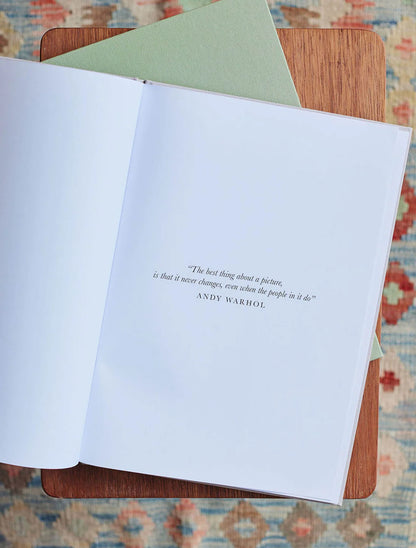 “The best thing about a picture,
is that it never changes, even when the people in it do”
ANDY WARHOL